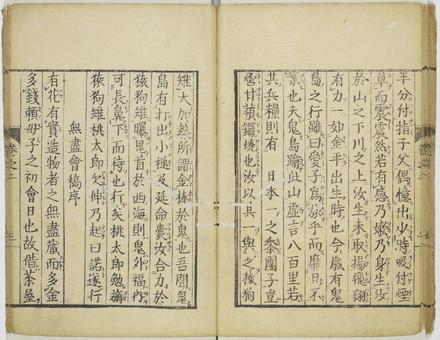 半分付指子父偶憶出少時吸付煙
草而震雲然若有感乃乃身生汝
於山之下川之上汝生未取揚飛翔
有力一如金平出生時也今歳有鬼
島之行雖曰愛子爲旅乎而靡日不
樂也夫鬼島踰此山虚言八百里若
其兵糧則有 日本一之黍團子豈
啻甘藷燒也汝以其一與之猿狗
雉大加勢所謂金棒於鬼也吾聞鬼
島有打出小槌及延命嚢汝合力於
猿狗雉曝鬼首於西海則鬼外福内
可長鼻下而待也行矣桃太郎勉旃
猿狗雉桃太郎欠伸乃起曰諾遂行
無盡會稿序
有花有實造物者之無盡藏而多金
多錢頼母子之初會日也故借茶屋